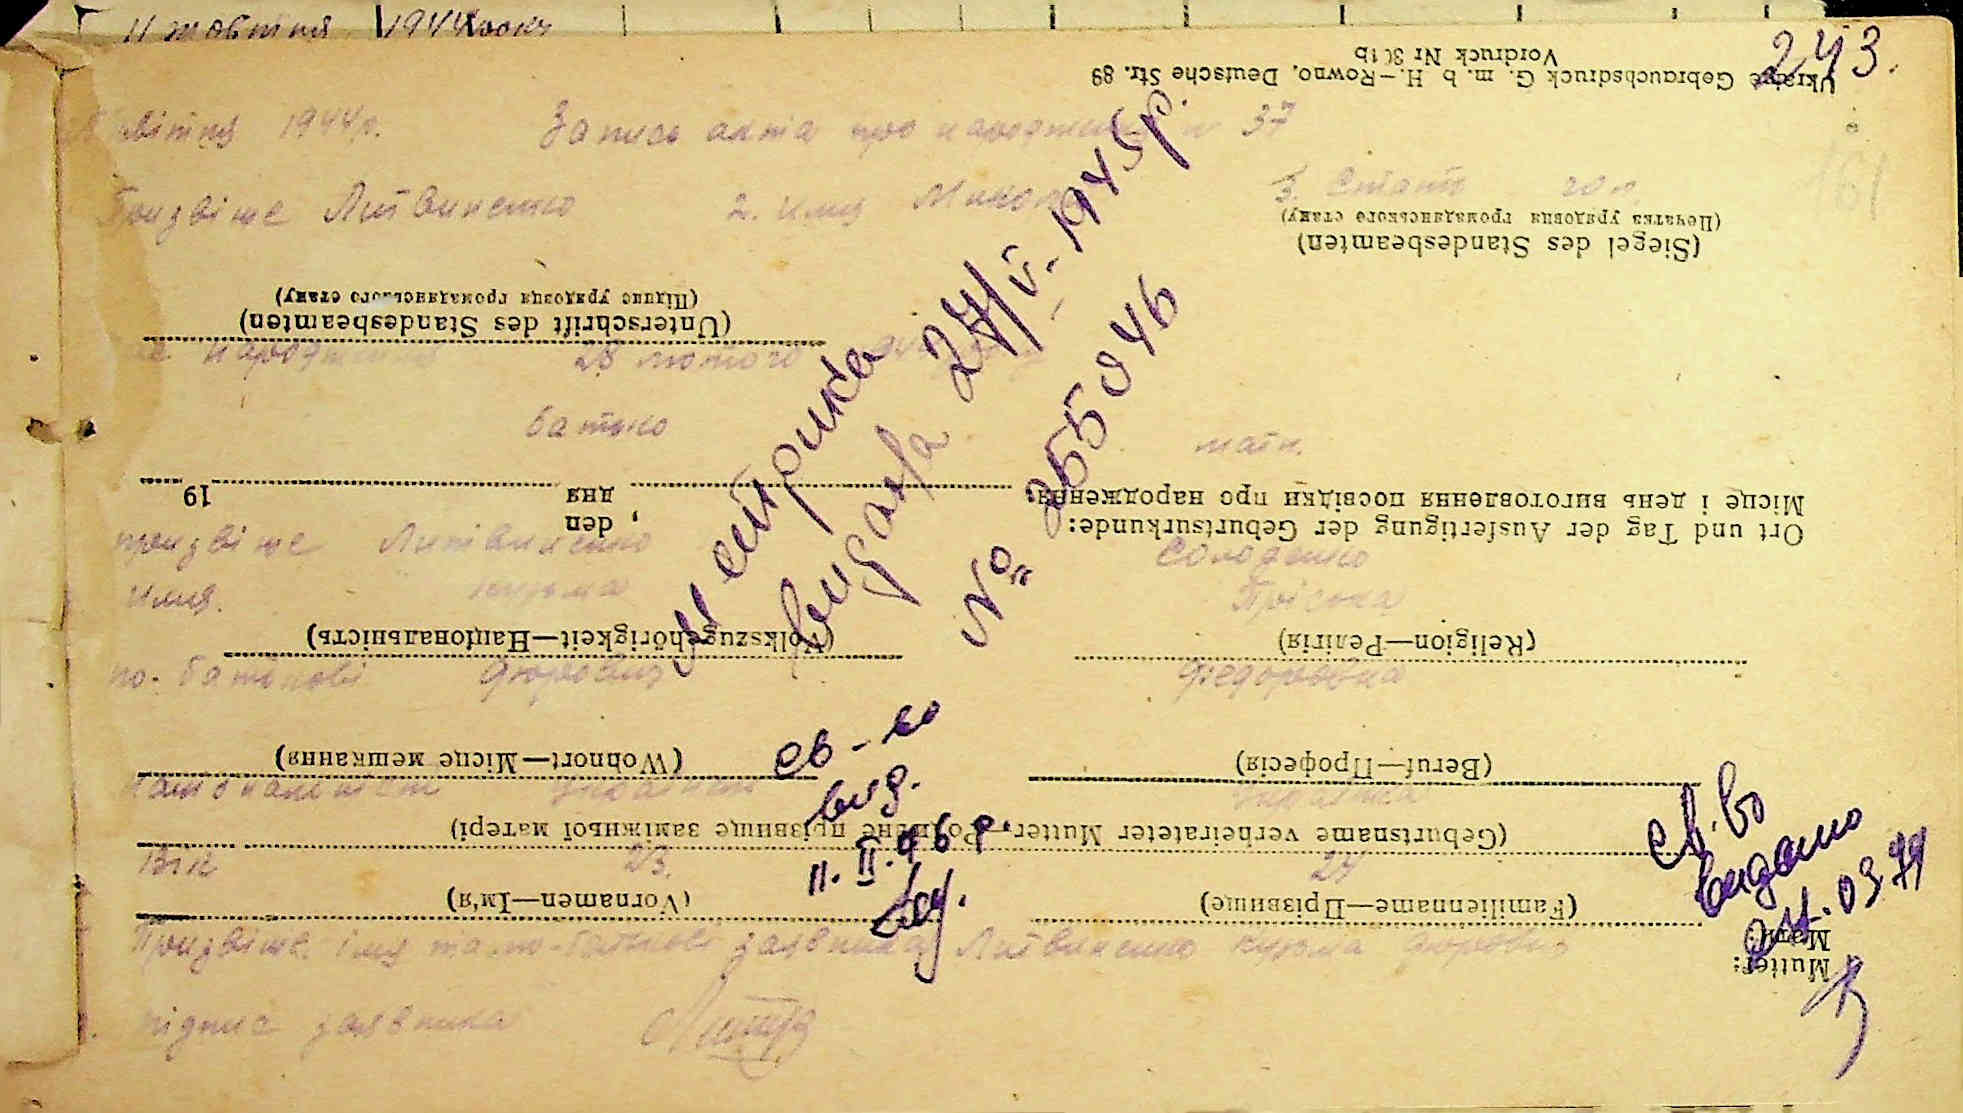 11 жовтня 1944 року
243.
Ukraine Gebrauchsdruck G. m. b. H.—Rowno, Deutsche Str. 89
Vordruck Nr 301b
1944р. Запись акта про народження № 37
Призвіще Литвиненко 2. имя Микола 3. Стать чол.
(Siegel des Standesbeamten)
(Печатка урядовця громадянського стану)
(Unterschrift des Standesbeamten)
(Підпис урядовця громадянського стану)
народження 28 лютого
батько мати.
Ort und Tag der Ausfertigung der Geburtsurkunde:
Місце і день виготовлення посвідки про народження:
, den
дня
19
призвіще Литвиненко Солоденко
имя. Кузьма Прісока
(Volkszugehörigkeit—Національність)
(Religion—Релігія)
по-батькові Федоровна
(Wohnort—Місце мешкання)
(Beruf—Професія)
національність українець українка
(Geburtsname verheirateter Mutter—Родинне прізвище заміжньої матері)
Вік 23. 24
(Vornamen—Ім'я)
(Familienname—Прізвище)
Mutter:
Мати:
Призвіще імя та по-батькові заявника Литвиненко Кузьма
підпис заявника
Метрика
видана 27/V-1945р.
№ 255046
св-во
вид.
11.II.96р.
св-во
видано
24.03.99